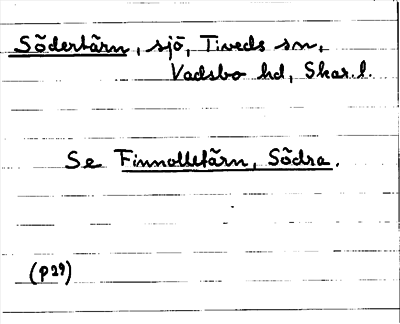 Södertärn, sjö, Tiveds sn,
Vadsbo hd, Skar.l.
Se Finnolletärn, Södra.
(P29)